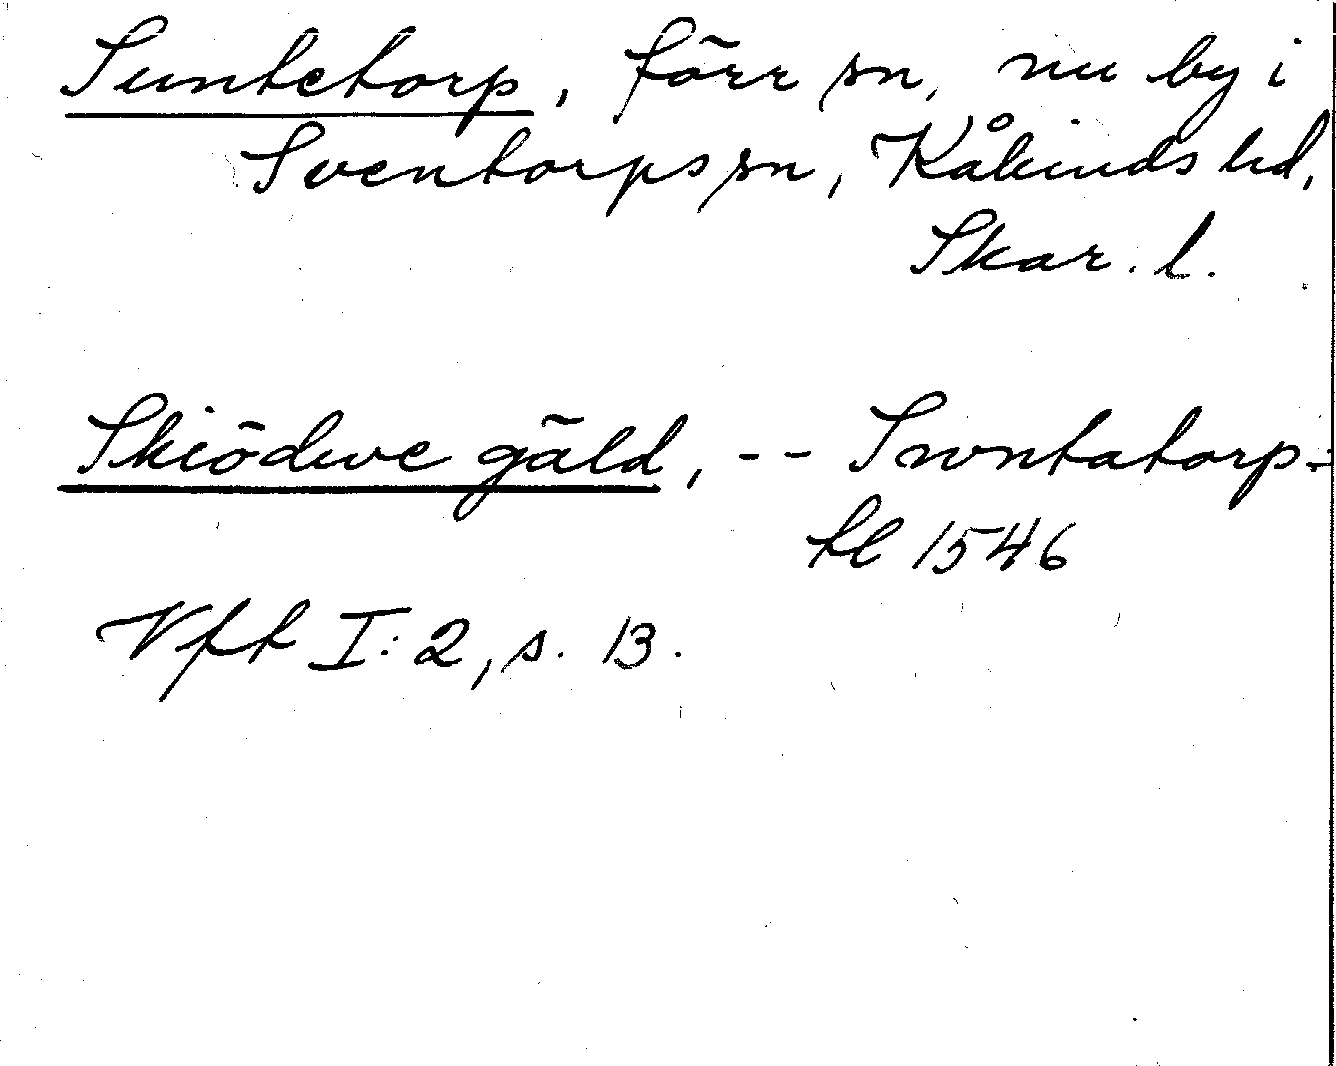 Suntetorp, förr sn, nu by i
Sventorps sn, Kåkinds hd,
Skar. l.
Skiödwe gäld, -- Swntatorp-
tl 1546
Vft I:2, s. 13.